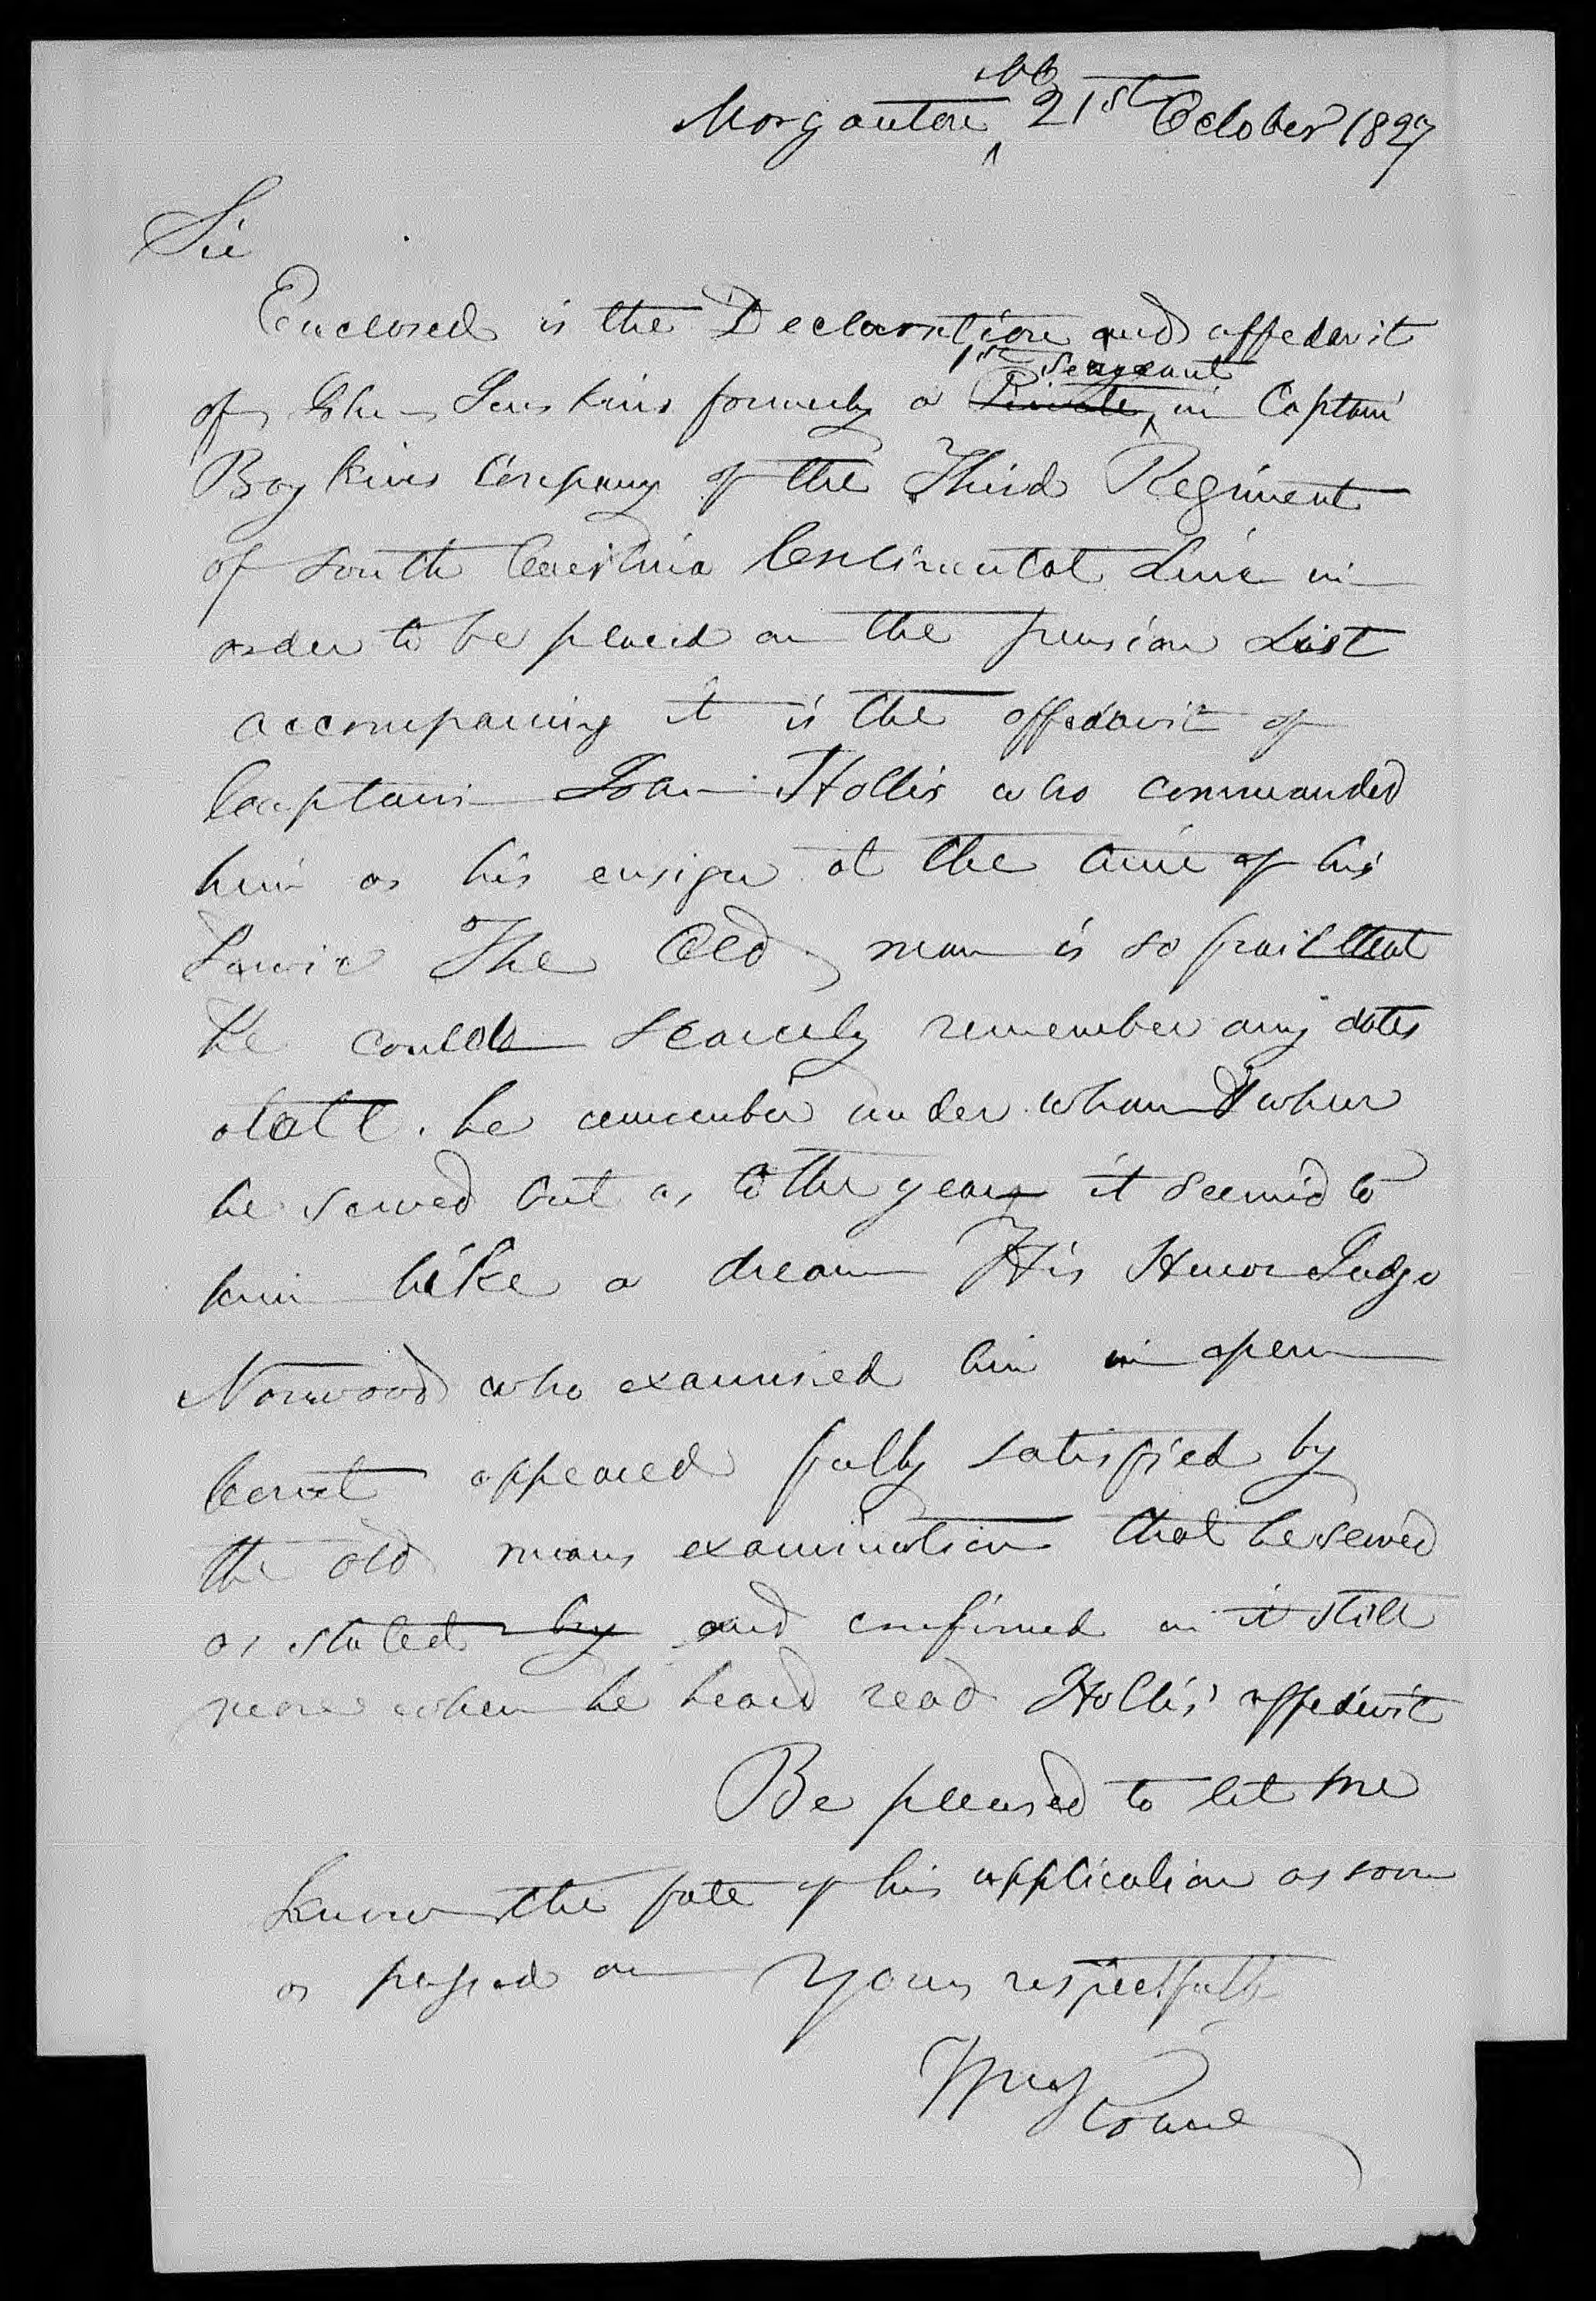 Morganton NC 21st October 1827
Sir
Enclosed is the Declaration and affedavit
of John Jenkins formerly a Private 1st Sergeant in Captain
Boykins Company of the Third Regiment
of South Carolina Continental Line in
order to be placed on the pension List
accompaning it is the affedavit of
Captain John Hollis who commanded
him as his ensign at the time of his
Service The Old man is so frail that
he could scarcely remember any dates
atall. he remember under whom & when
he served but as to the years it seemed to
him like a dream His Honor Judge
Norwood who examined him in open
Court appeared fully satisfied by
the old mans examination that he served
as stated by and confirmed in it still
more when he heard read Hollis' affedavit
Be pleased to let me
know the fate of his application as soon
as passed on Yours respectfully